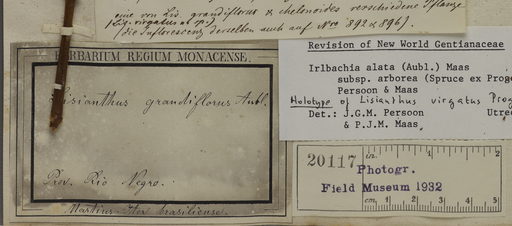 eine von Lis. grandiflorus & chelonoides verschiedene Pflanze
(Lis. virgatus sp.)
(die Inflorescenz derselben auch auf Nro 892 & 896).
HERBARIUM REGIUM MONACENSE.
Lisianthus grandiflorus Aubl.
Prov. Rio Negro.
Martius Iter brasiliense.
Revision of New World Gentianaceae
Irlbachia alata (Aubl.) Maas
subsp. arborea (Spruce ex Prog
Persoon & Maas
Holotype of Lisianthus virgatus Prog
Det.: J.G.M. Persoon Utre
& P.J.M. Maas
20117
in. 1 2
Photogr.
Field Museum 1932
cm. 1 2 3 4 5